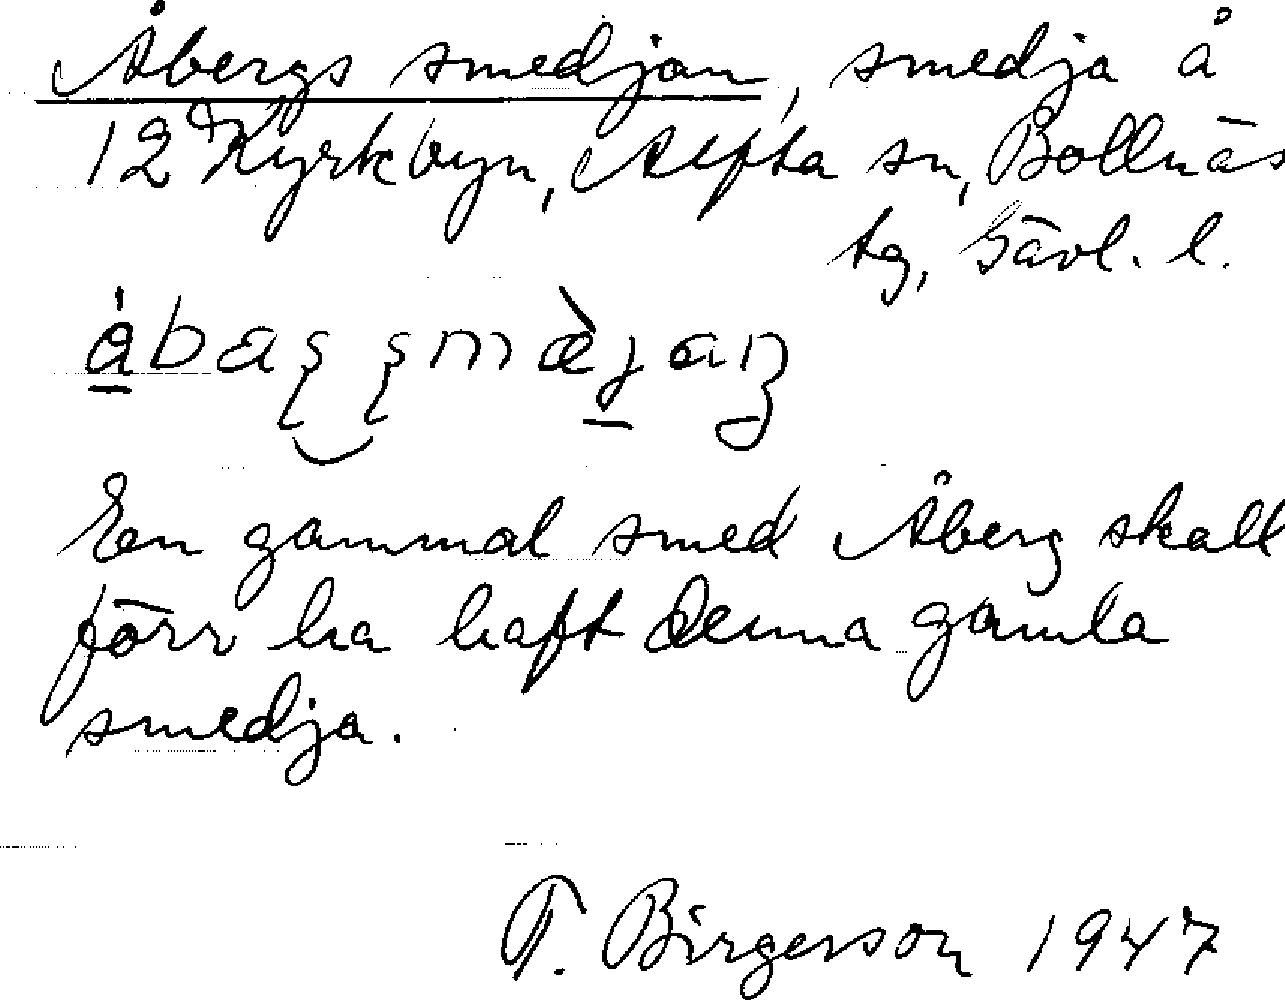 Åbergs smedjan, smedja å
12 Kyrkbyn, Alfta sn, Bollnäs
tg, Gävl. l.
En gammal smed Åberg skall
förr ha haft denna gamla
smedja.
T. Birgerson 1947